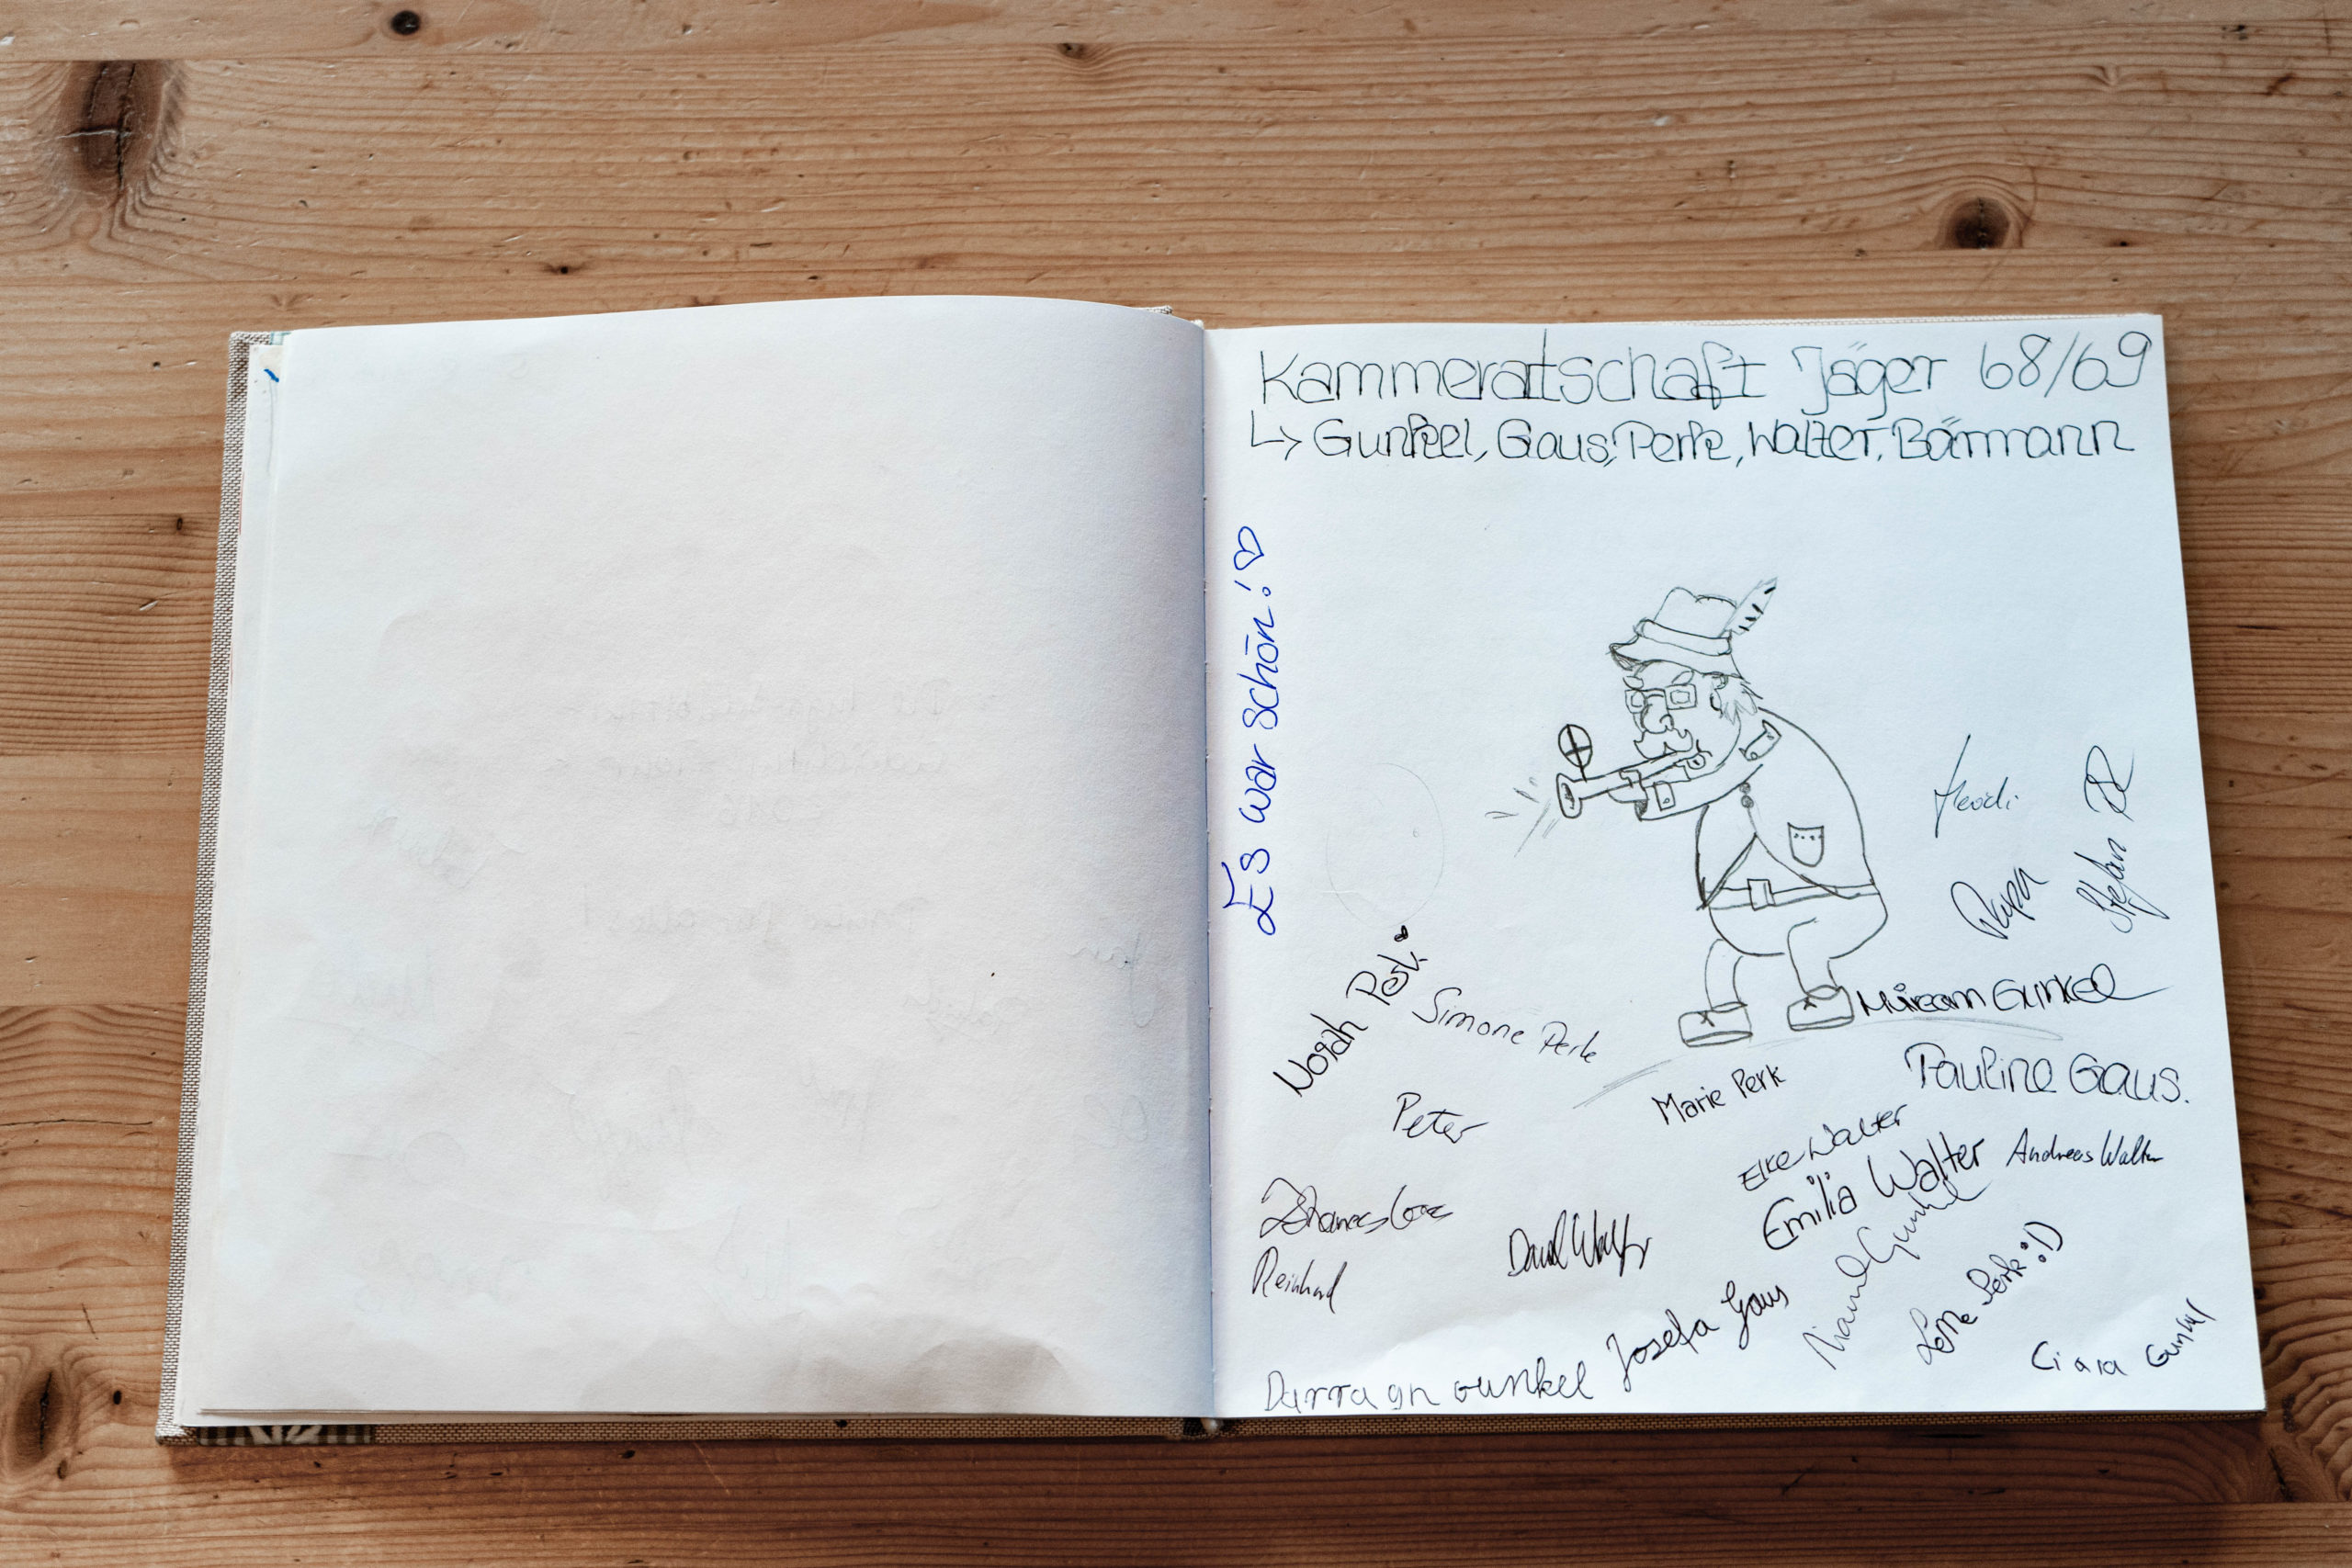 Kammeratschaft Jäger 68/69
↳ Gunkel, Gaus, Perk, Walter, Bärmann
Es war schön! ♡
Heidi
Papa
Stefan
Noah Perk
Simone Perk
Miriam Gunkel
Marie Perk
Pauline Gaus.
Peter
Elke Walter
Emilia Walter
Andreas Walter
Johannes Gaus
Reinhard
David
Gunkel
Josefa Gaus
Lotte Perk :D
Ciara Gunkel
Darragh Gunkel